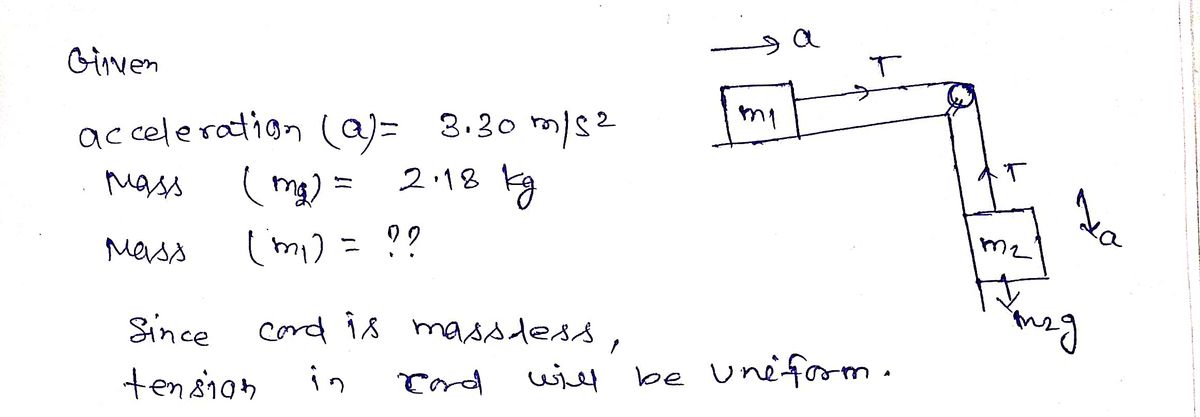 Given
acceleration (a) = 3.30 m/s2
Mass (m2) = 2.18 kg
Mass (m1) = ??
Since cord is massless,
tension in cord will be uniform.
a
T
m1
T
a
m2
m2g